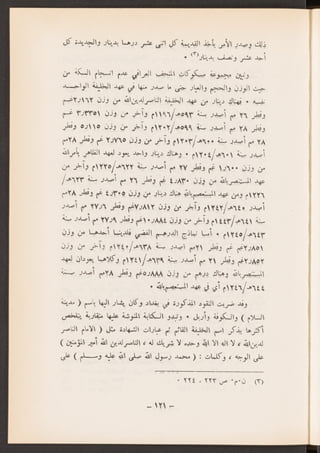 ذلك وصدر الأمر بأخذ القديمة كل اثنى عشر درهما بدينار والجديدة كل
أحد عشر ونصف بدينار(٣) ٠
وتبين مجموعة مسكوكات المتحف العراقي عدم انسجام السكة من
حيث الوزن والحجم والعيار حتى ما صدر منها في عهد الخليفة الواحد
نفسه ٠ فهناك دينار من عهد الخليفة الناصرلدين الله من وزن ٢ر١٦٢غم
وقطر ٢٦ مم أصدر سنة ٥٩٣هـ/١١٩٦م وآخر من وزن ٣ر٣٣٥١ غم
وقطر ٢٨ مم أصدر سنة ٥٩٩هـ/١٢٠٢م وآخر من وزن ٥ر١١٥ وقطر
٢٨ مم أصدر سنة ٦٠٠هـ/١٢٠٣م وآخر من وزن ٢ر٧٦٥ غم وقطر ٢٨مم
أصدر سنة ٦٠١هـ/١٢٠٤م ٠ وهناك دينار واحد يعود لعهد الظاهر بأمرالله
من وزن ١ر٦٠٠ غم وقطر ٢٧ مم أصدر سنة ٦٢٢هـ/١٢٢٥م وآخر من
عهد المستنصربالله من وزن ٤ر٨٣٠ غم وقطر ٢٦ مم أصدر سنة ٦٢٣هـ/
١٢٢٦م ومن عهد المستعصم بالله هناك دينار من وزن ٤ر٣٠٥ غم وقطر ٢٨مم
أصدر ٦٤٠هـ/١٢٤٢م وآخر من وزن ٧ر٨١٢غم وقطر ٢٧ر٦ مم أصدر
سنة ٦٤١هـ/١٢٤٣م وآخر من وزن ١٠ر٨٨٤غم وقطر ٢٧ر٩ مم أصدر سنة
٦٤٣هـ/١٢٤٥م ٠ أما نماذج الدرهم الفضي فلدينا أحدهما من وزن
٢ر٨٥١غم وقطر ٢١مم أصدر سنة ٦٣٨هـ/١٢٤٠م وآخر من وزن
٢ر٨٥٢غم وقطر ٢١ مم أصدر سنة ٦٣٩هـ/١٢٤١م وكلاهما يعودان لعهد
المستنصربالله وهناك درهم من وزن ٥ر٨٨٨غم وقطر ٢٨مم أصدر سنة
٦٤٤هـ/١٢٤٦م أي في عهد المستعصم بالله ٠
وقد ضربت النقود المذكورة في بغداد وكان يشار اليها باسم ( مدينة
السلام ) والكوفة وأربل ٠ وتبدو الكتابة المنقوشة عليها متقاربة يتلخص
أكثرها بذكر اسم الخليفة القائم ثم عبارات الشهادة مثل ( الامام الناصر
لدين الله ، لا اله الا الله وحده لا شريك له ، الناصر لدين الله أمير المؤمنين )
على الوجه ، وكلمات : ( محمد رسول الله صلى الله عليه وسلم ) على
(٣) ن٠م٠ ص ٢٢٣ ، ٢٢٤ ٠
- ١٢١ -